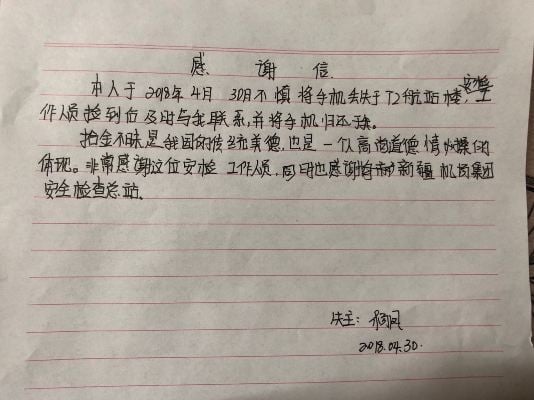 感 谢 信
本人于2018年4月30日不慎将手机丢失于T2航站楼，安检工
作人员捡到后及时与我联系，并将手机归还于我。
拾金不昧是我国的传统美德，也是一个人高尚道德情操的
体现。非常感谢这位安检工作人员，同时也感谢新疆机场集团
安全检查总站。
失主：
2018.04.30.